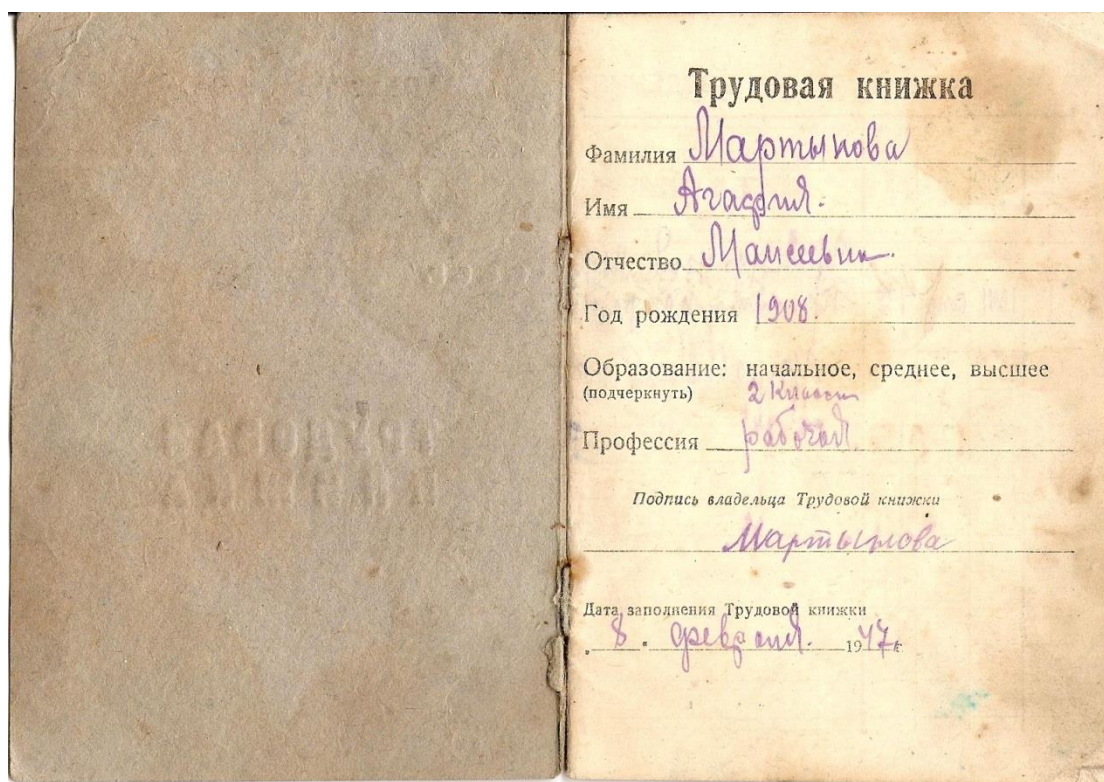 Трудовая книжка
Фамилия Мартынова
Имя Агафия.
Отчество Маисеевна
Год рождения 1908.
Образование: начальное, среднее, высшее
(подчеркнуть) 2 класса
Профессия рабочая
Подпись владельца Трудовой книжки
Мартынова
Дата заполнения Трудовой книжки
„ 8 " февраля. 1947 г.